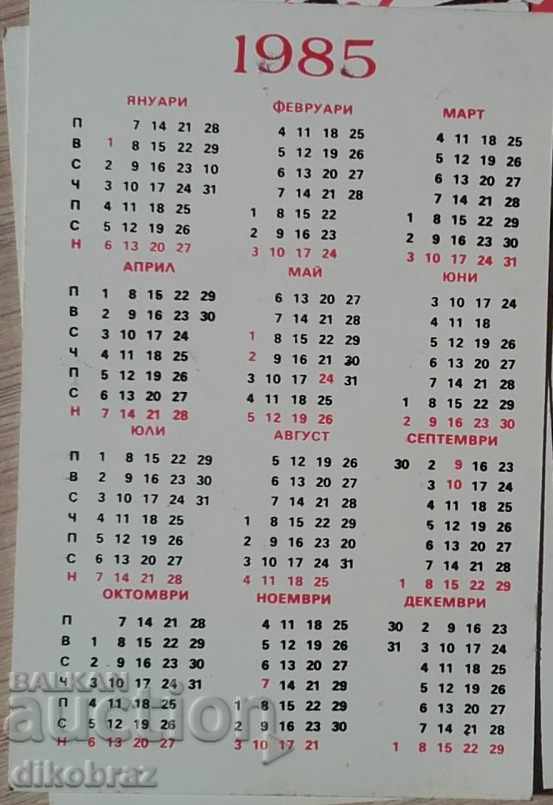 1985
ЯНУАРИ ФЕВРУАРИ МАРТ
П 7 14 21 28 4 11 18 25 4 11 18 25
В 1 8 15 22 29 5 12 19 26 5 12 19 26
С 2 9 16 23 10 6 13 20 27 6 13 20 27
Ч 3 10 17 24 31 7 14 21 28 7 14 21 28
П 4 11 18 25 1 8 15 22 1 8 15 22 29
С 5 12 19 26 2 9 16 23 2 9 16 23 30
Н 6 13 20 27 3 10 17 24 3 10 17 24 31
АПРИЛ МАЙ ЮНИ
П 1 8 15 22 29 6 13 20 27 3 10 17 24
В 2 9 16 23 30 7 14 21 28 4 11 18
С 3 10 17 24 1 8 15 22 29 5 12 19 26
Ч 4 11 18 25 2 9 16 21 30 6 13 20 27
П 5 12 19 26 3 10 17 24 31 7 14 21 28
С 6 13 20 27 4 11 18 25 1 8 15 22 29
Н 7 14 21 28 5 12 19 26 2 9 16 23 30
ЮЛИ АВГУСТ СЕПТЕМВРИ
П 1 8 15 22 29 5 12 19 26 30 2 9 16 23
В 2 9 16 23 30 6 13 20 27 3 10 17 24
С 3 10 17 24 31 7 14 21 28 4 11 18 25
Ч 4 11 18 25 1 8 15 22 29 5 12 19 26
П 5 12 19 26 2 9 16 23 20 6 13 20 27
С 6 13 20 27 3 10 17 24 31 7 14 21 28
Н 7 14 21 28 4 11 18 25 1 8 15 22 29
ОКТОМВРИ НОЕМВРИ ДЕКЕМВРИ
П 7 14 21 28 4 11 18 25 30 2 9 16 23
В 1 8 15 22 29 5 12 19 26 31 3 10 17 24
С 2 9 16 23 30 6 13 20 27 4 11 18 25
Ч 3 10 17 24 31 7 14 21 29 5 12 19 26
П 4 11 18 25 1 8 15 22 29 6 13 20 27
С 5 12 19 26 2 9 16 23 30 7 14 21 28
Н 6 13 20 27 3 10 17 21 1 8 15 22 29
BALKAN
auction
dikobraz